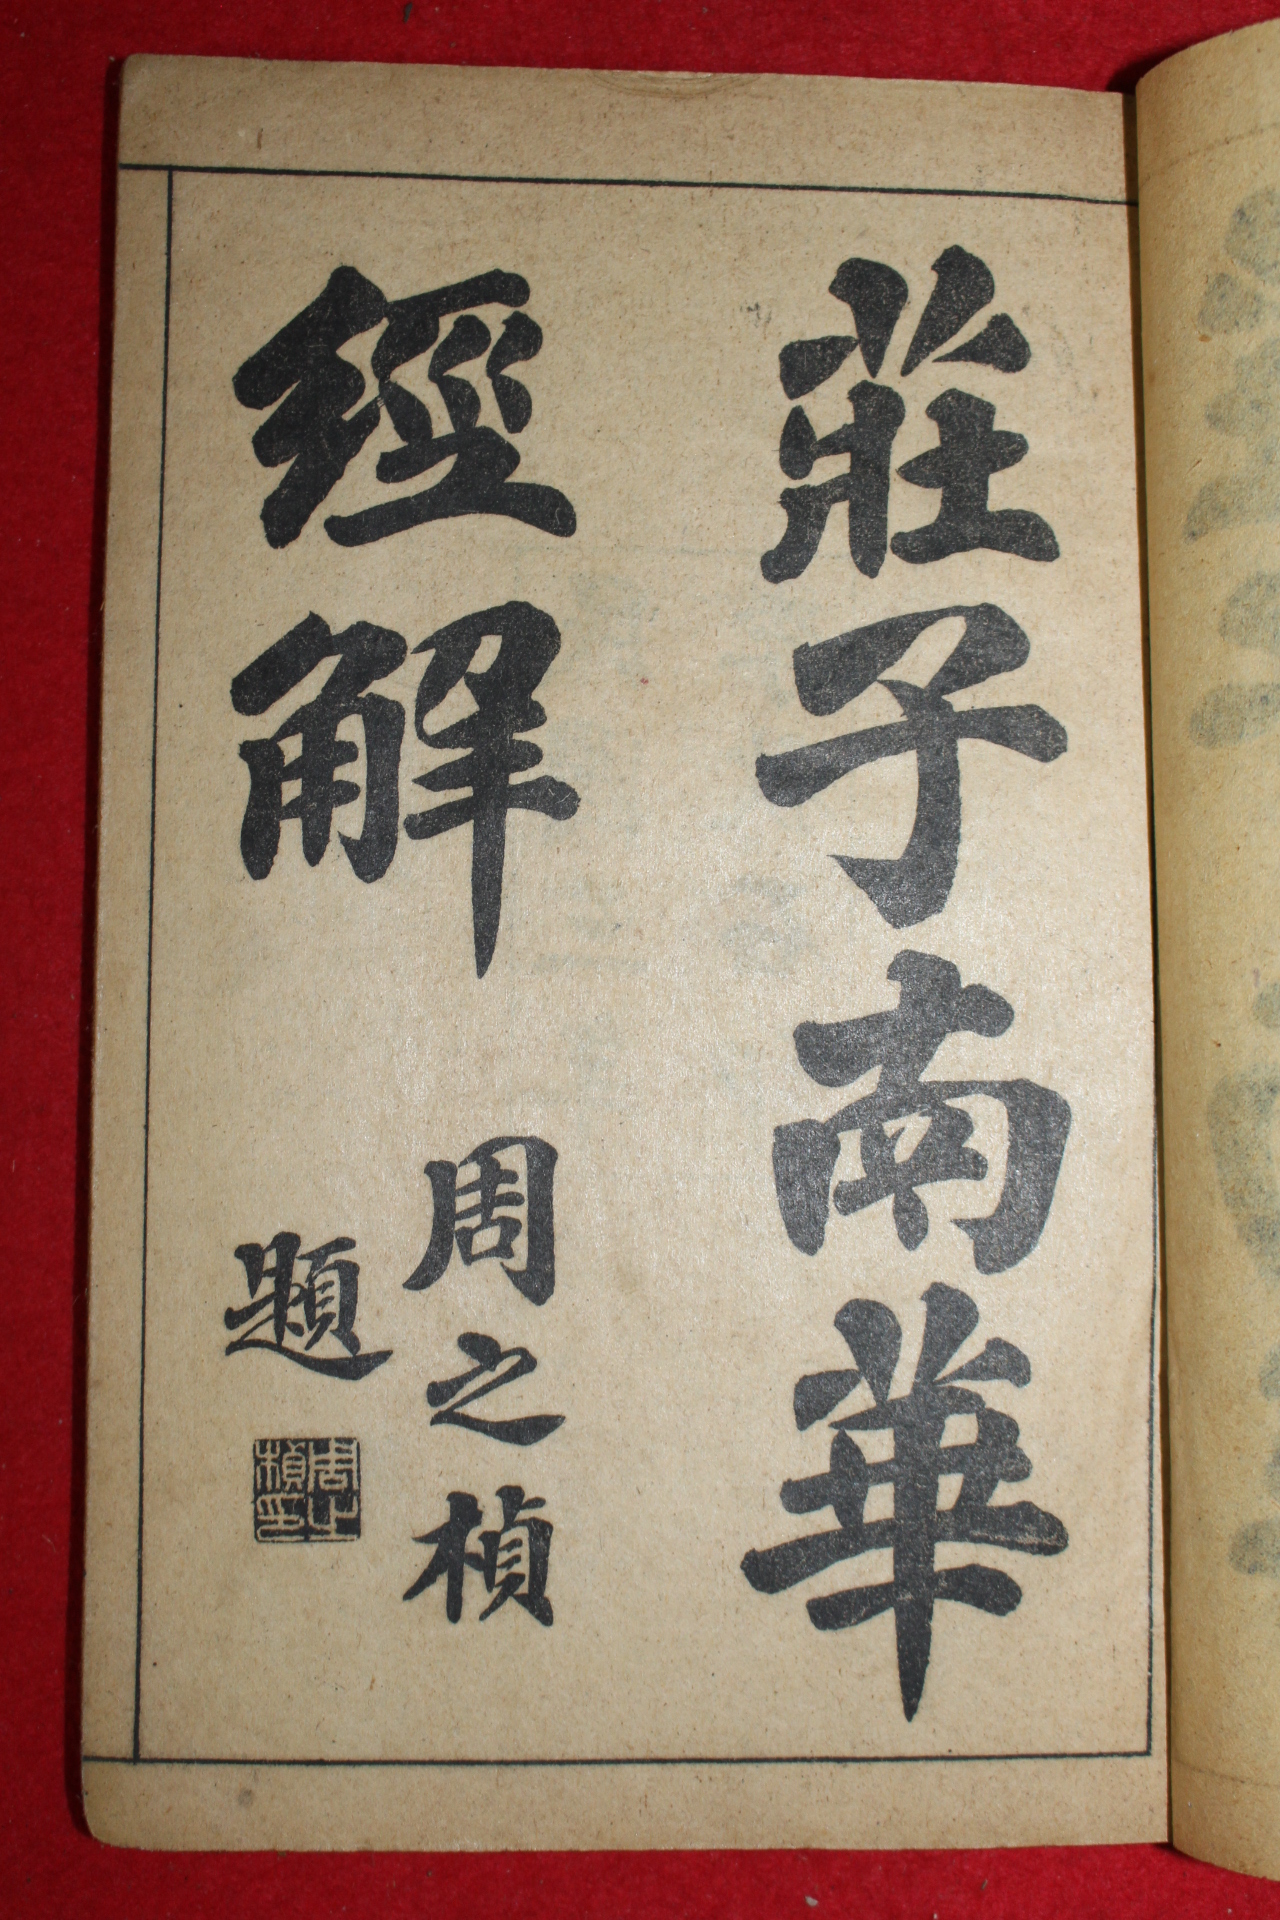 莊子南華
經解
周之楨
題
周之
楨印